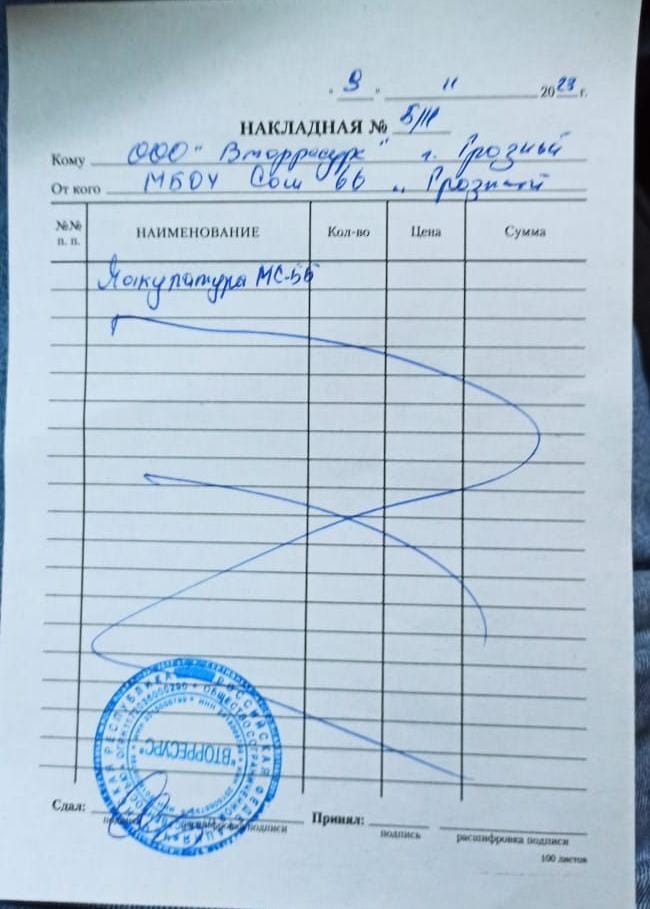 " 9 " 11 2023 г.
НАКЛАДНАЯ № Б/Н
Кому ООО "Вторресурс" г. Грозный
От кого МБОУ Сош 66 г. Грозный
№№ п. п. НАИМЕНОВАНИЕ Кол-во Цена Сумма
Макулатура МС-5Б
РОССИЙСКАЯ ФЕДЕРАЦИЯ
РЕСПУБЛИКА
"ВТОРРЕСУРС"
Сдал: Принял:
расшифровка подписи подпись расшифровка подписи
100 листов